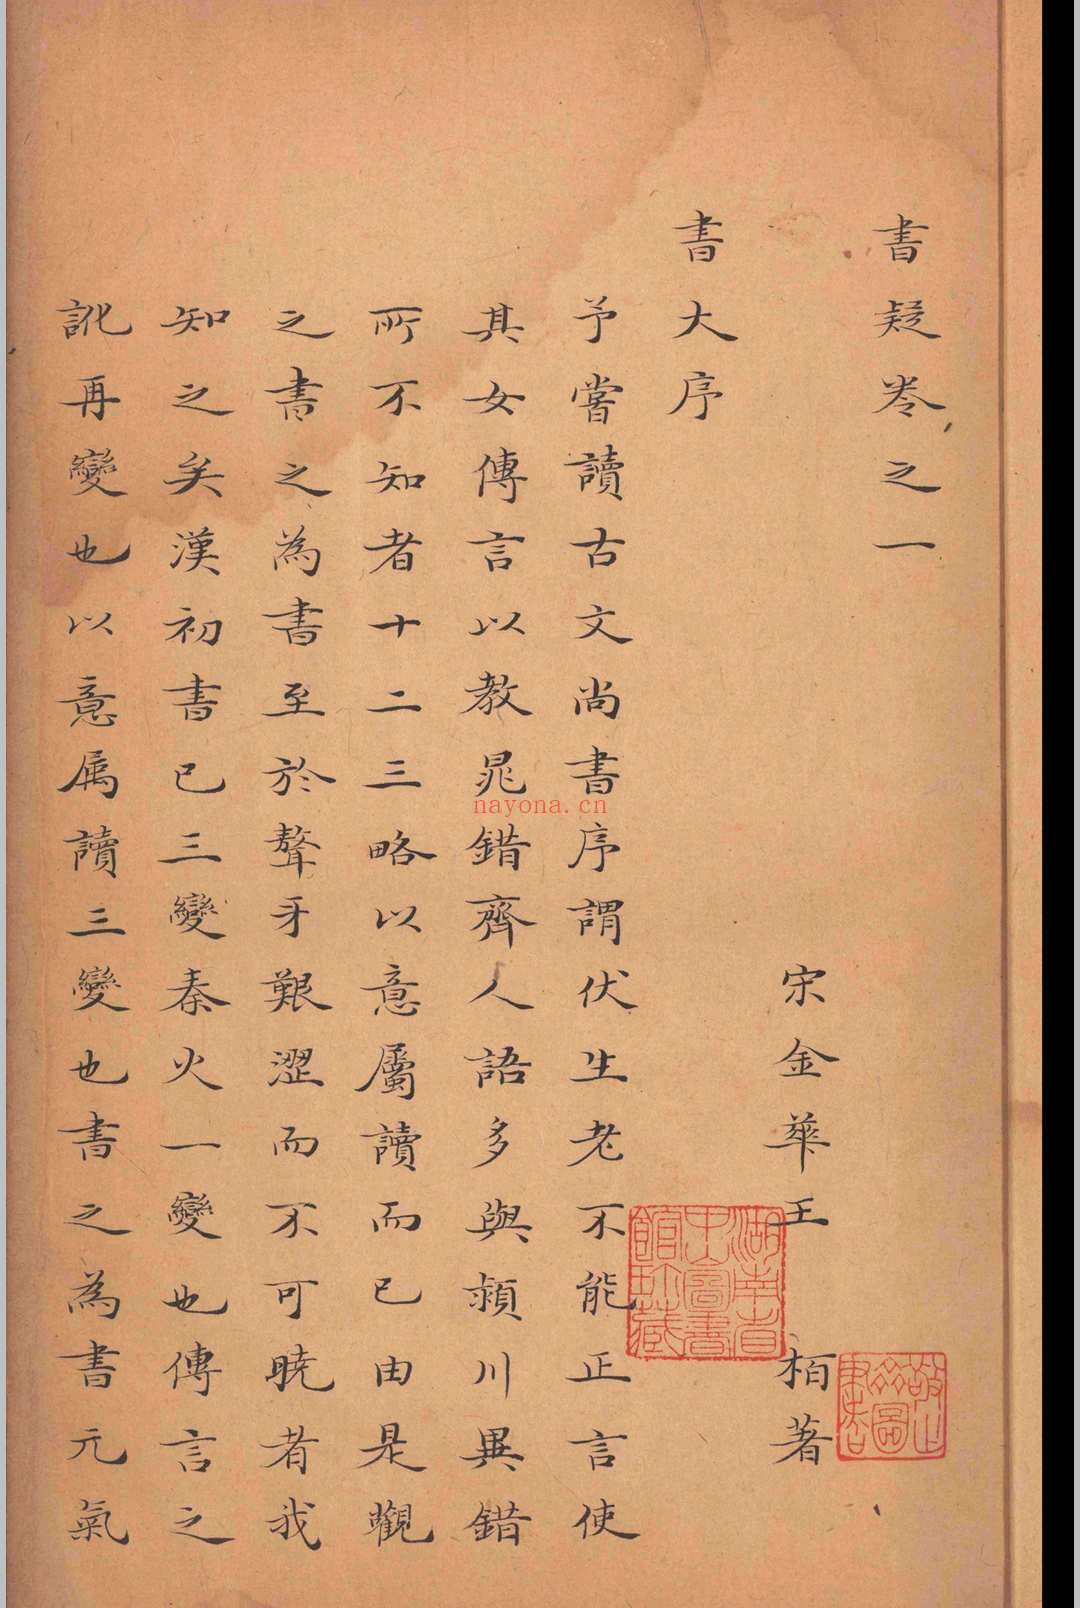 書疑卷之一
宋金華王柏著
書大序
予嘗讀古文尚書序謂伏生老不能正言使
其女傳言以教晁錯齊人語多與潁川異錯
所不知者十二三略以意屬讀而已由是觀
之書之為書至於聱牙艱澀而不可曉者我
知之矣漢初書已三變秦火一變也傳言之
訛再變也以意属讀三變也書之為書元氣
湖南省中山圖書館珍藏
nayona.cn